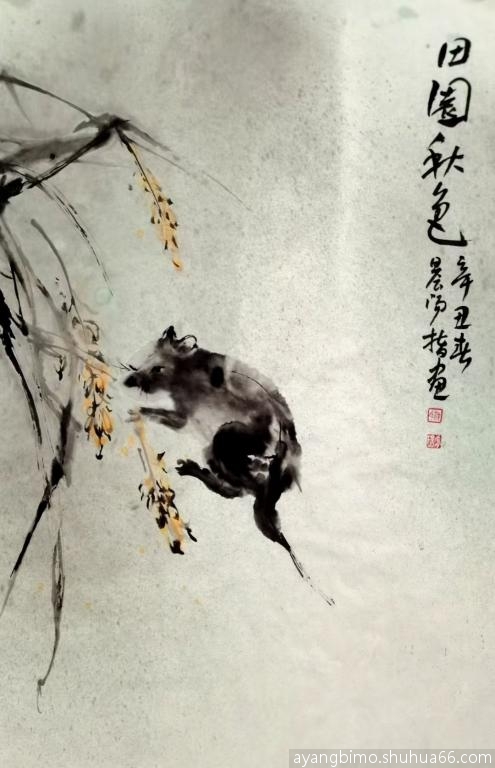 田園秋色
辛丑春
晨阳指画
ayangbimo.shuhua66.com